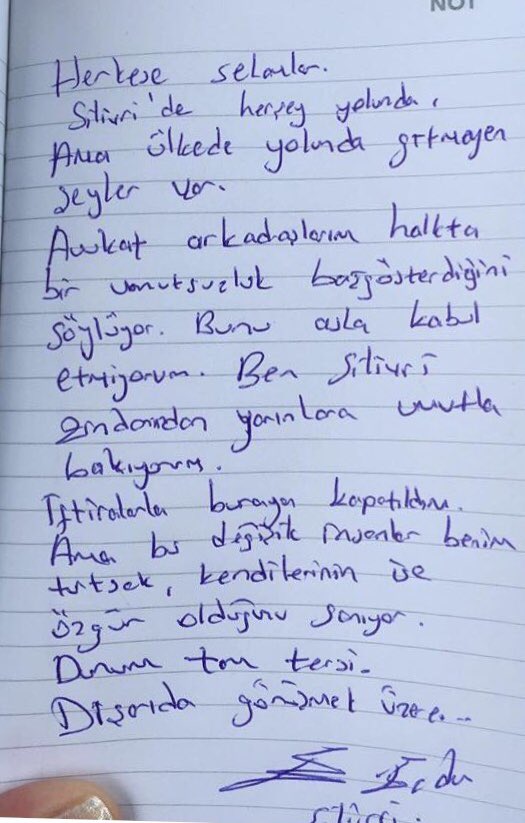 NOT
Herkese selamlar.
Silivri'de herşey yolunda.
Ama ülkede yolunda gitmeyen
şeyler var.
Avukat arkadaşlarım halkta
bir umutsuzluk başgösterdiğini
söylüyor. Bunu asla kabul
etmiyorum. Ben Silivri
zindanından yarınlara umutla
bakıyorum.
İftiralarla buraya kapatıldım.
Ama bu değişik insanlar benim
tutsak, kendilerinin ise
özgür olduğunu sanıyor.
Durum tam tersi.
Dışarıda görüşmek üzere...